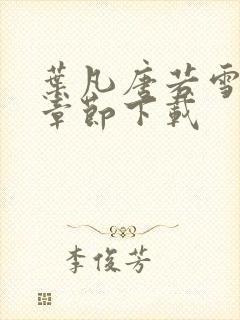 葉凡唐若雪
章節下載
李俊芳